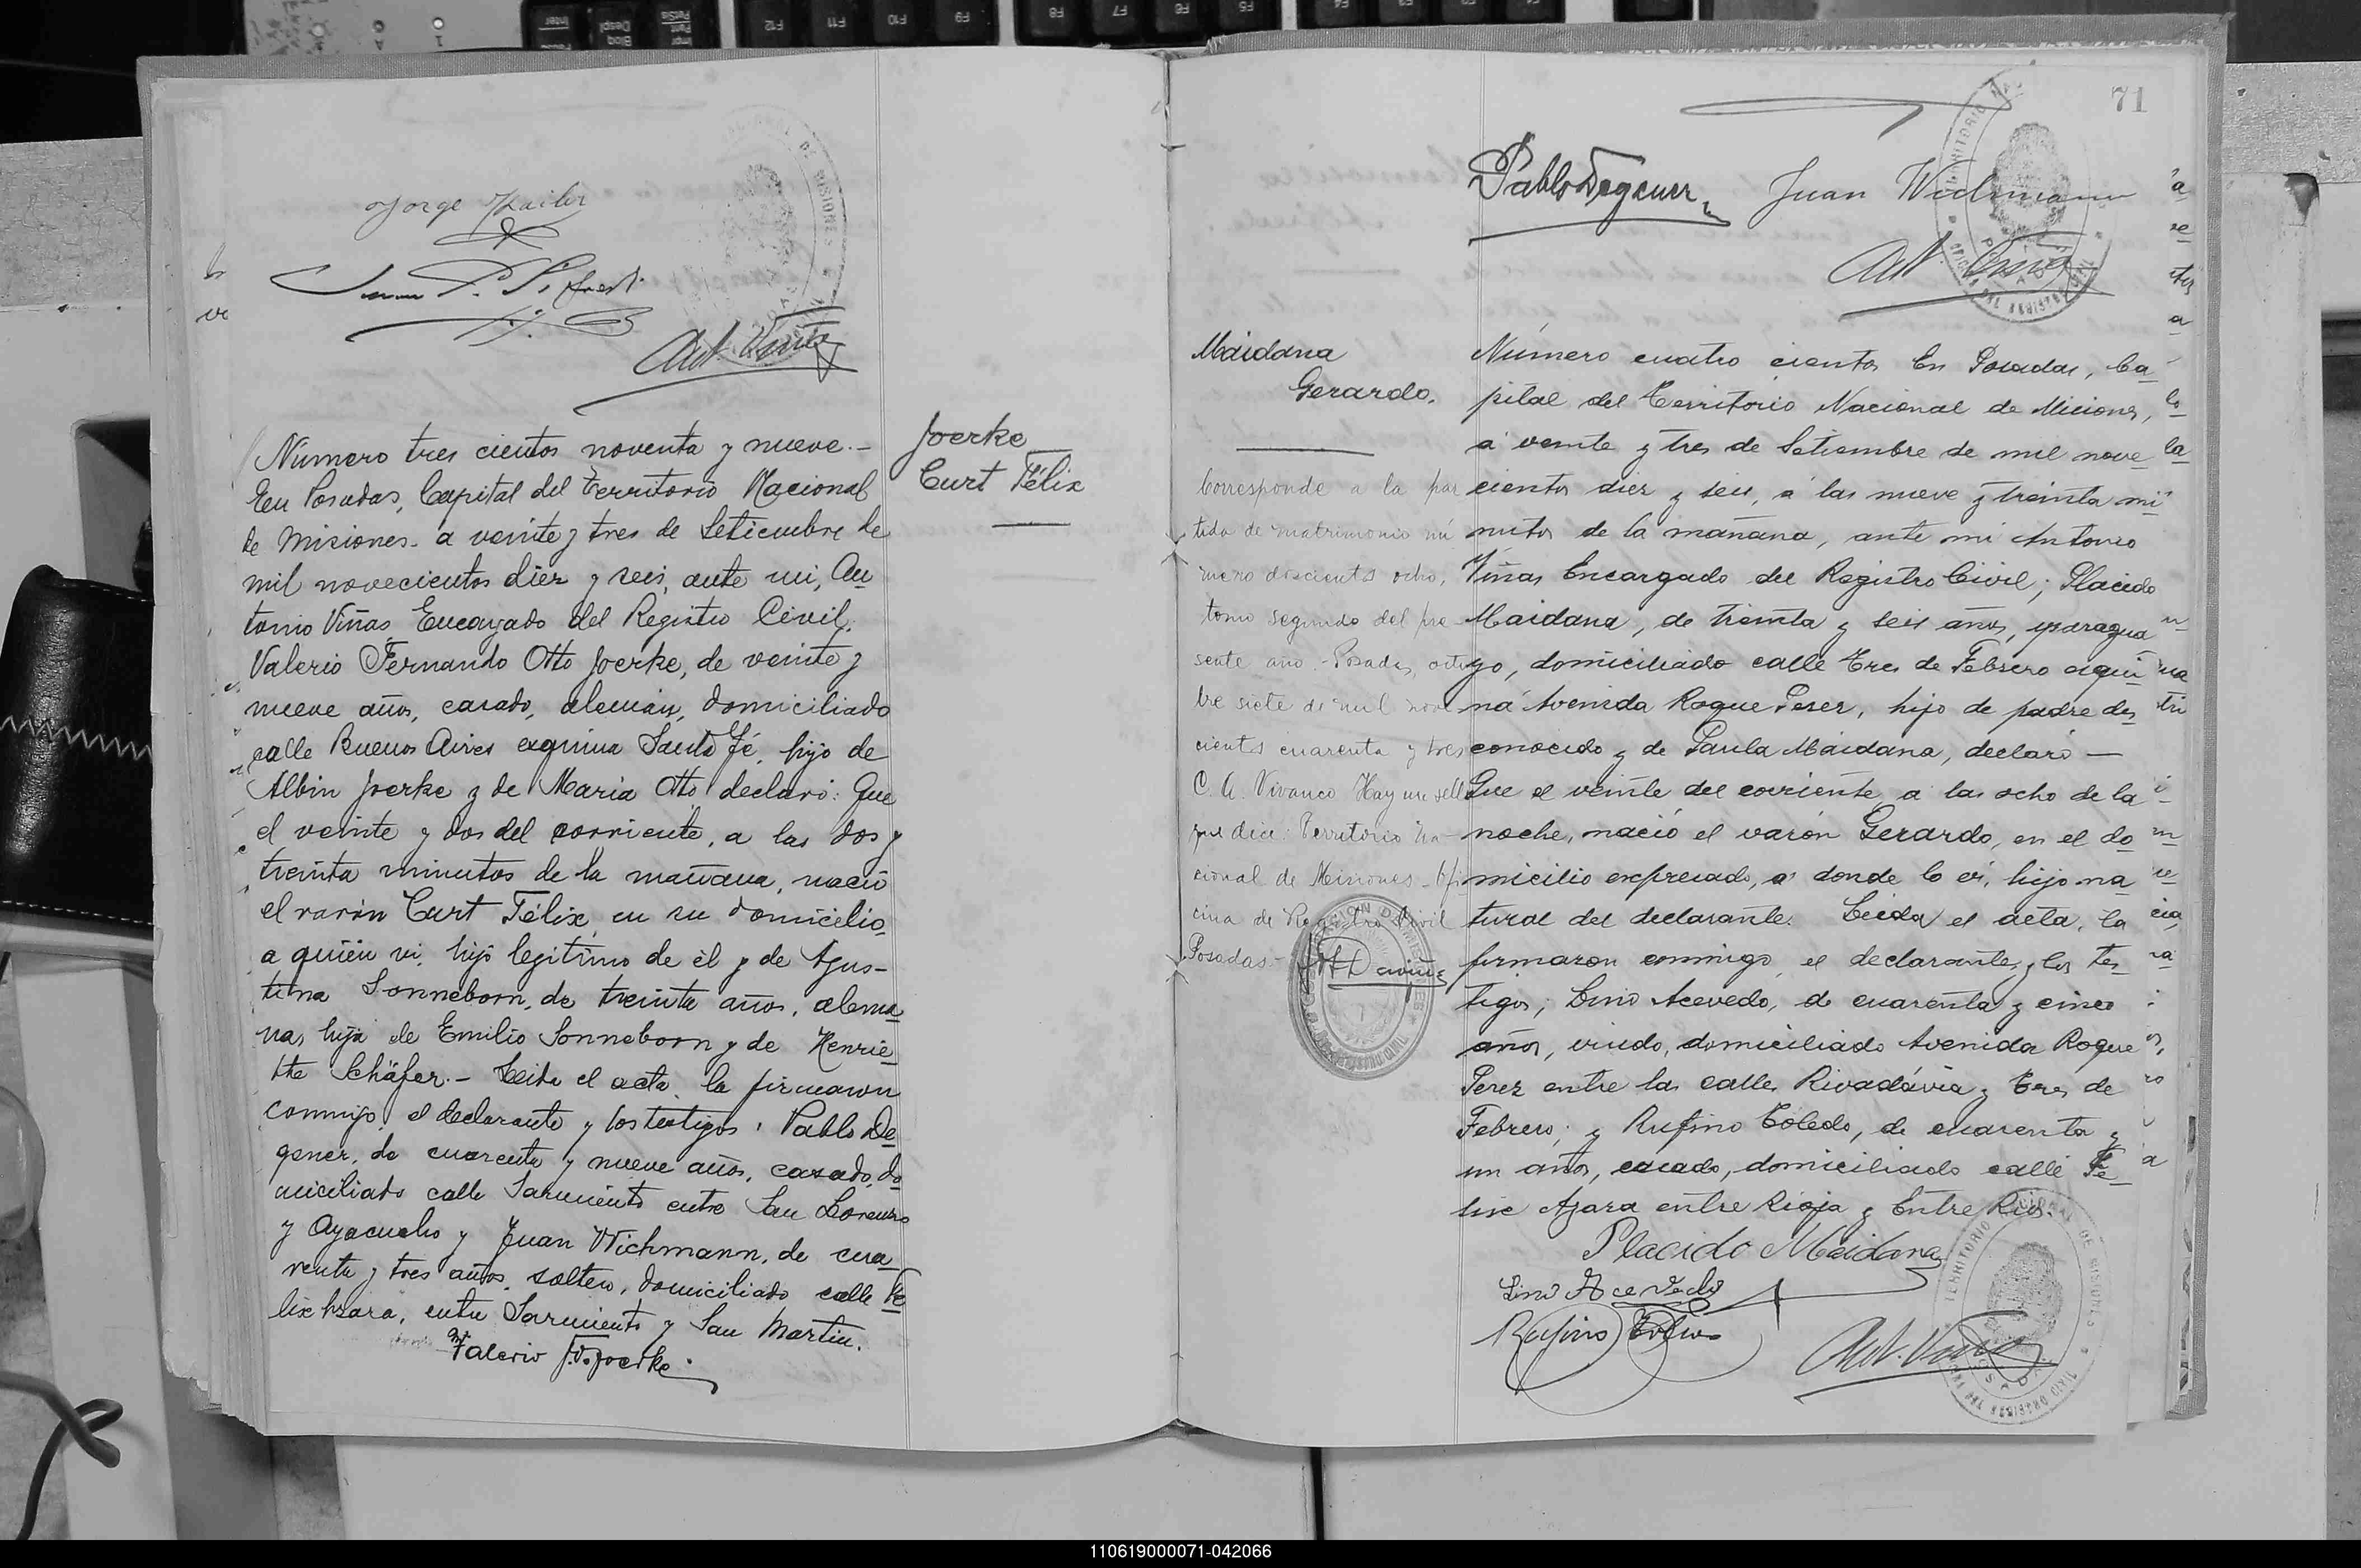 Jorge
Ant. Viñas
Número tres cientos noventa y nueve.-
En Posadas, Capital del Territorio Nacional
de Misiones a veinte y tres de Setiembre de
mil novecientos diez y seis, ante mi, An
tonio Viñas, Encargado del Registro Civil,
Valerio Fernando Otto Joerke, de veinte y
nueve años, casado, alemán, domiciliado
calle Buenos Aires esquina Santa Fé, hijo de
Albin Joerke y de Maria Otto declaró: Que
el veinte y dos del corriente, a las dos y
treinta minutos de la mañana, nació
el varón Curt Félix, en su domicilio,
a quién vi, hijo legítimo de él y de Agus-
tina Sonneborn, de treinta años, alema
na, hija de Emilio Sonneborn y de Henrie
tte Schäfer.- Leida el acta, la firmaron
conmigo, el declarante y los testigos, Pablo De
gener, de cuarenta y nueve años, casado, do
miciliado calle Sarmiento entre San Lorenzo
y Ayacucho y Juan Wichmann, de cua
renta y tres años, soltero, domiciliado calle Fé
lix Azara, entre Sarmiento y San Martin.
Valerio F. O. Joerke
Joerke
Curt Félix
71
Pablo Degener
Juan Wichmann
Ant. Viñas
Maidana
Gerardo.
Corresponde a la par
tida de matrimonio nú
mero doscientos ocho,
tomo segundo del pre-
sente año.- Posadas, octu
bre siete de mil nove
cientos cuarenta y tres
C. A. Vivanco Hay un sello
que dice: Territorio Na-
cional de Misiones - Ofi
cina de Registro Civil
Posadas-
Número cuatro cientos En Posadas, Ca
pital del Territorio Nacional de Misiones,
a veinte y tres de Setiembre de mil nove
cientos diez y seis, a las nueve y treinta mi
nutos de la mañana, ante mi Antonio
Viñas Encargado del Registro Civil; Placido
Maidana, de treinta y seis años, paragua
yo, domiciliado calle Tres de Febrero esqui
na Avenida Roque Perez, hijo de padre des
conocido y de Paula Maidana, declaró —
Que el veinte del corriente a las ocho de la
noche, nació el varón Gerardo, en el do
micilio expresado, a donde lo vi, hijo na
tural del declarante. Leida el acta, la
firmaron conmigo, el declarante y los tes
tigos; Lino Acevedo, de cuarenta y cinco
años, viudo, domiciliado Avenida Roque
Perez entre las calles Rivadávia y Tres de
Febrero; y Rufino Toledo, de cuarenta y
un años, casado, domiciliado calle Fé
lix Azara entre Rioja y Entre Rios.
Placido Maidana
Lino Acevedo
Rufino Toledo
Ant. Viñas
110619000071-042066